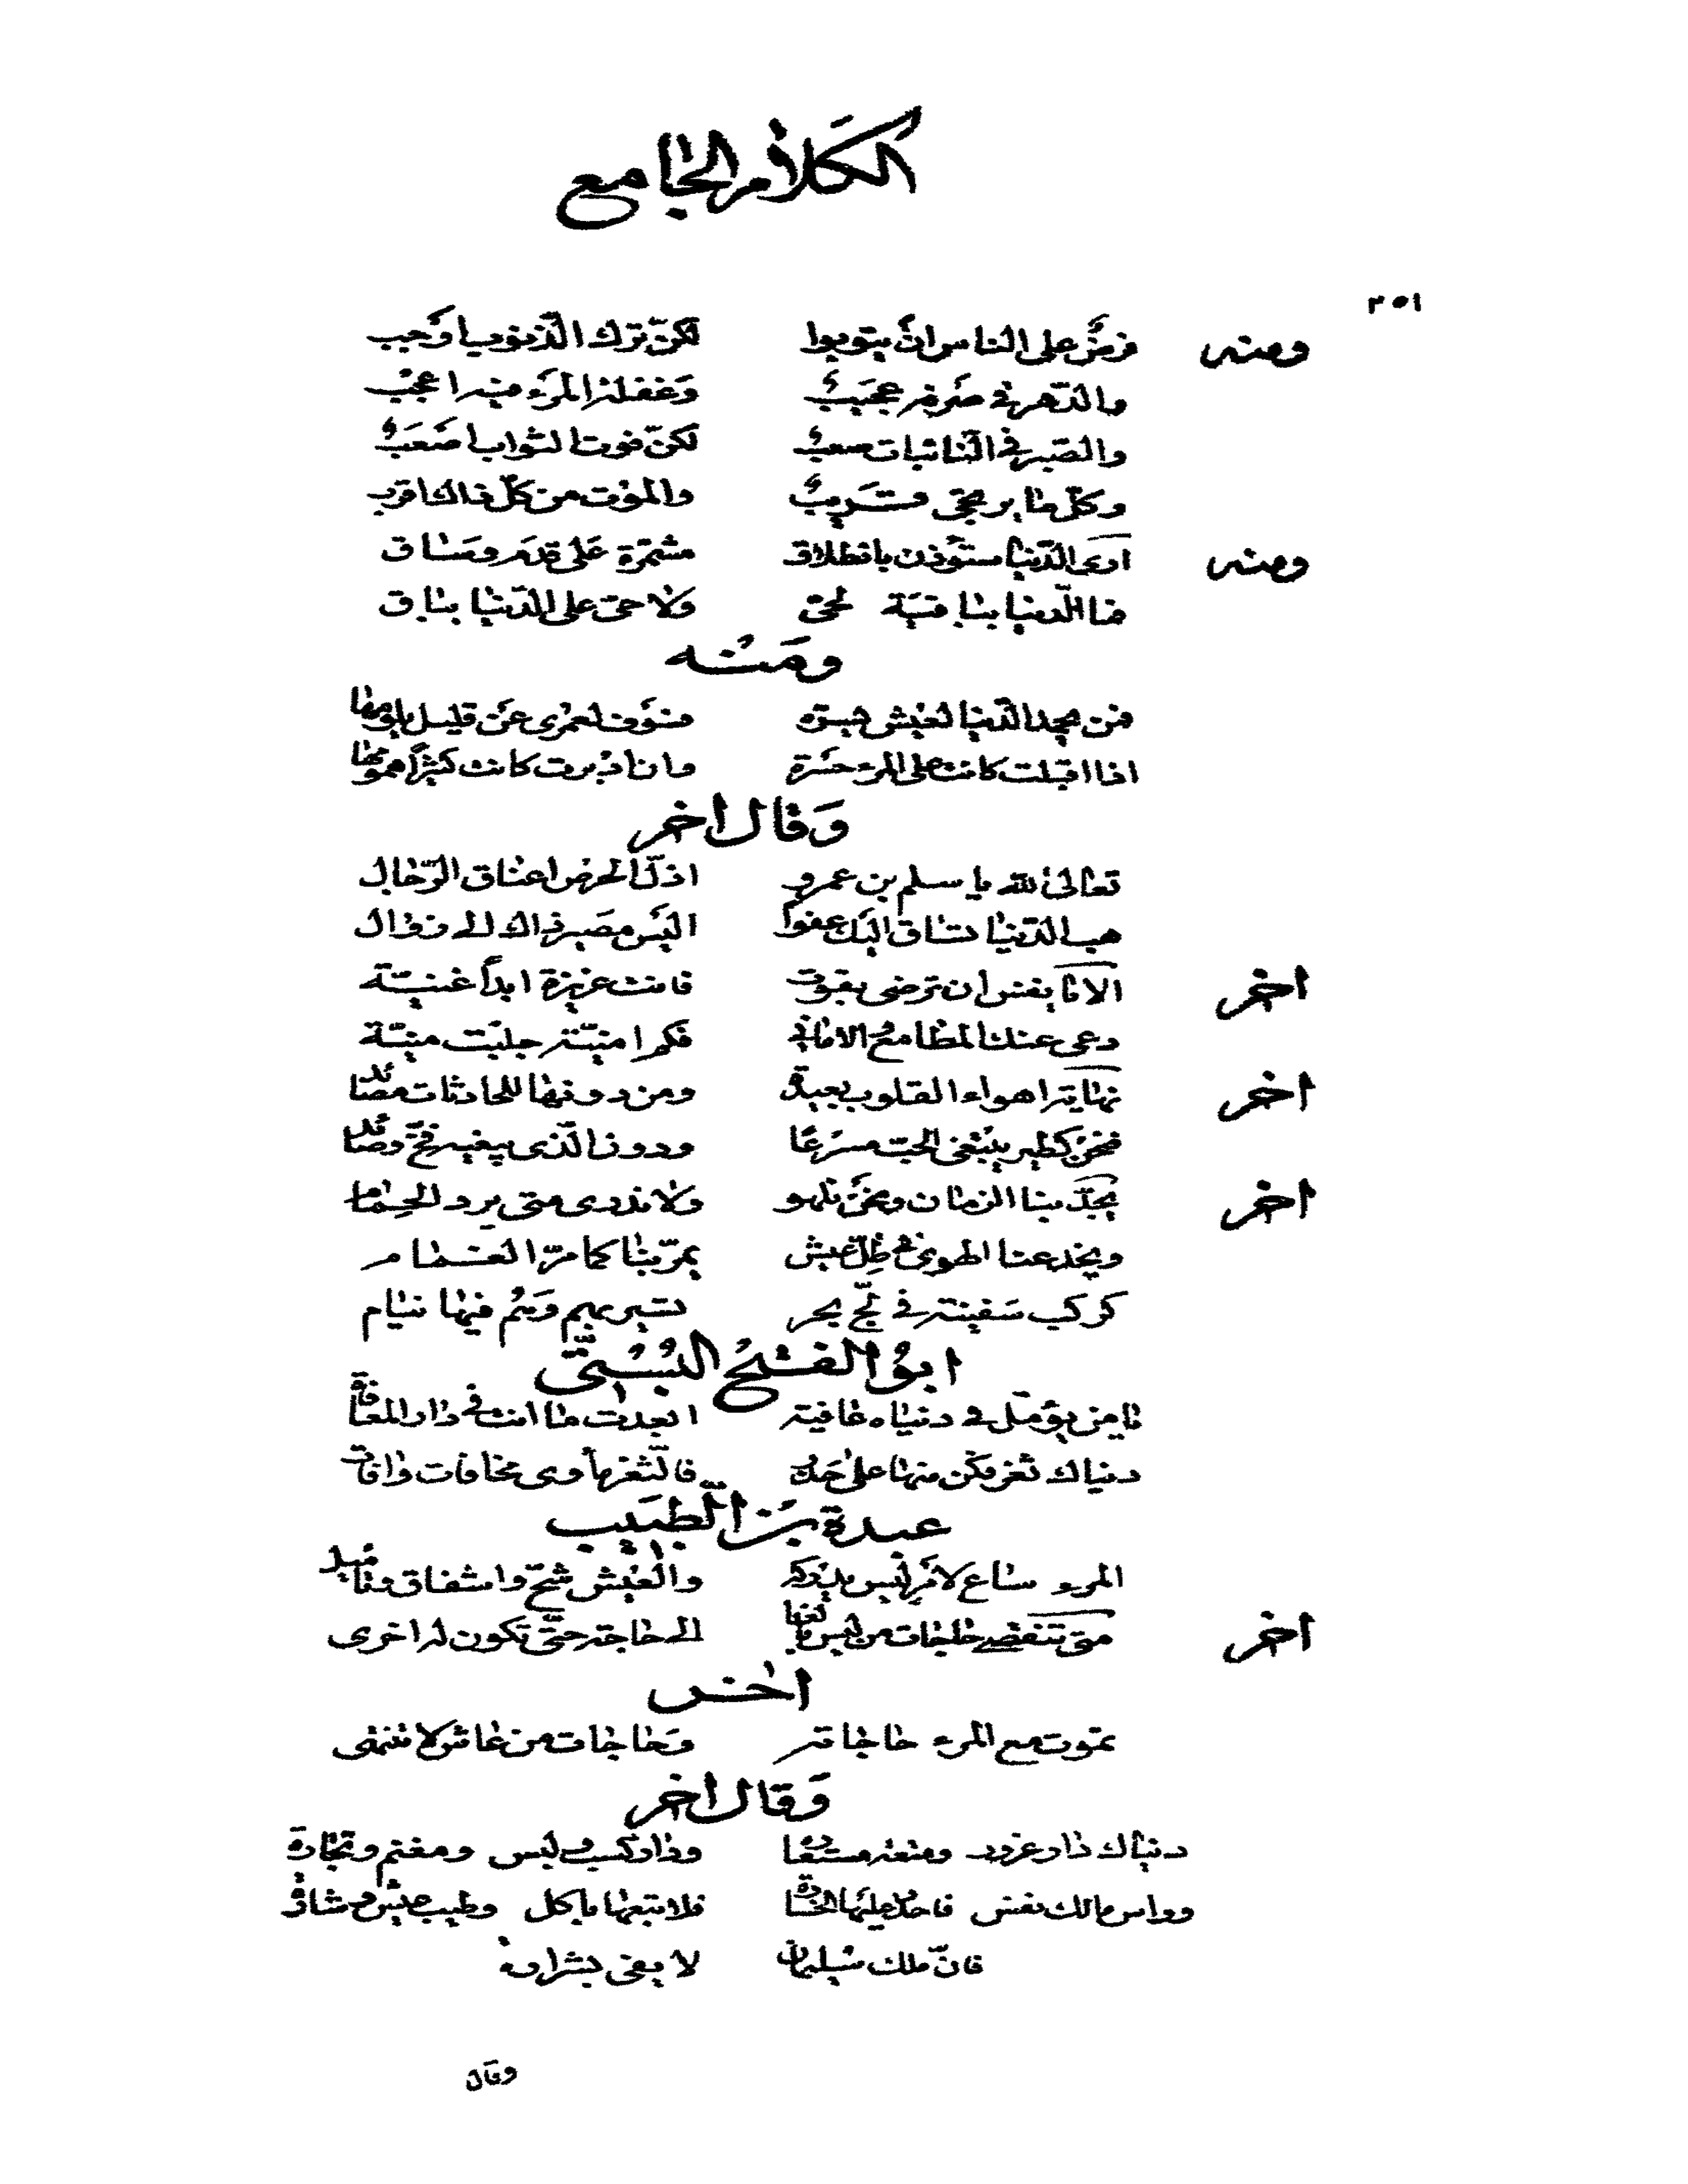 الكلام الجامع
٢٥١
ومنه فرض على الناس ان يتوبوا لكنّ ترك الذنوب اوجب
والدّهر في صرفه عجيب وغفلة المرء منه اعجب
والصبر في النائبات صعب لكنّ فوت الثواب اصعب
وكلّ ما يرتجى قريب والموت من كلّ ذاك اقرب
ومنه ارى الدّنيا ستؤذن بانطلاق مشمّرة على قدم وساق
فما الدنيا بباقية لحىّ ولا حىّ على الدّنيا بباق
ومنه
فمن يحمد الدّنيا لعيش يسره فسوف لعمرى عن قليل يلومها
اذا اقبلت كانت على المرء حسرة وان ادبرت كانت كثيراً همومها
وقال اخر
تعالى الله يا سلم بن عمرو اذلّ الحرص اعناق الرّجال
هب الدّنيا تساق اليك عفواً اليس مصير ذاك الى زوال
اخر الا يا نفس ان ترضى بقوت فانت عزيزة ابداً غنيّة
دعى عنك المطامع الامانى فكم امنيّة جلبت منيّة
اخر نهاية اهواء القلوب بعيدة ومن دونها للحادثات مصائد
فنحن كطير يبتغى الحبّ مسرعًا ودون الّذى يبغيه فخّ وصائد
اخر يجدّ بنا الزمان ونحن نلهو ولا ندرى متى يرد الحماما
ويخدعنا الهوى في ظلّ عيش يمرّ بنا كما مرّ الغمام
كركب سفينة في لجّ بحر تسير بهم وهم فيها نيام
ابو الفتح البستىّ
يا من يؤمّل في دنياه عافية ابعدت ما انت في دار المعافاة
دنياك ثغر فكن منها على حذر فالثغر مأوى مخافات وافات
عبدة بن الطبيب
المرء ساع لامر ليس يدركه والعيش شحّ واشفاق وتاميل
اخر متى تنقضى حاجات من ليس بالغا الى حاجة حتّى تكون له اخرى
اخر
تموت مع المرء حاجاته وحاجات من عاش لا تنقضى
وقال اخر
دنياك دار غرور ومتعة مستعارة ودار كسب ولبس ومغنم وتجارة
وراس مالك نفس فاحذر عليها الخسارة فلا تبعها باكل وطيب عيش وشارة
فانّ ملك سليمان لا يفى بشرارة
وقال